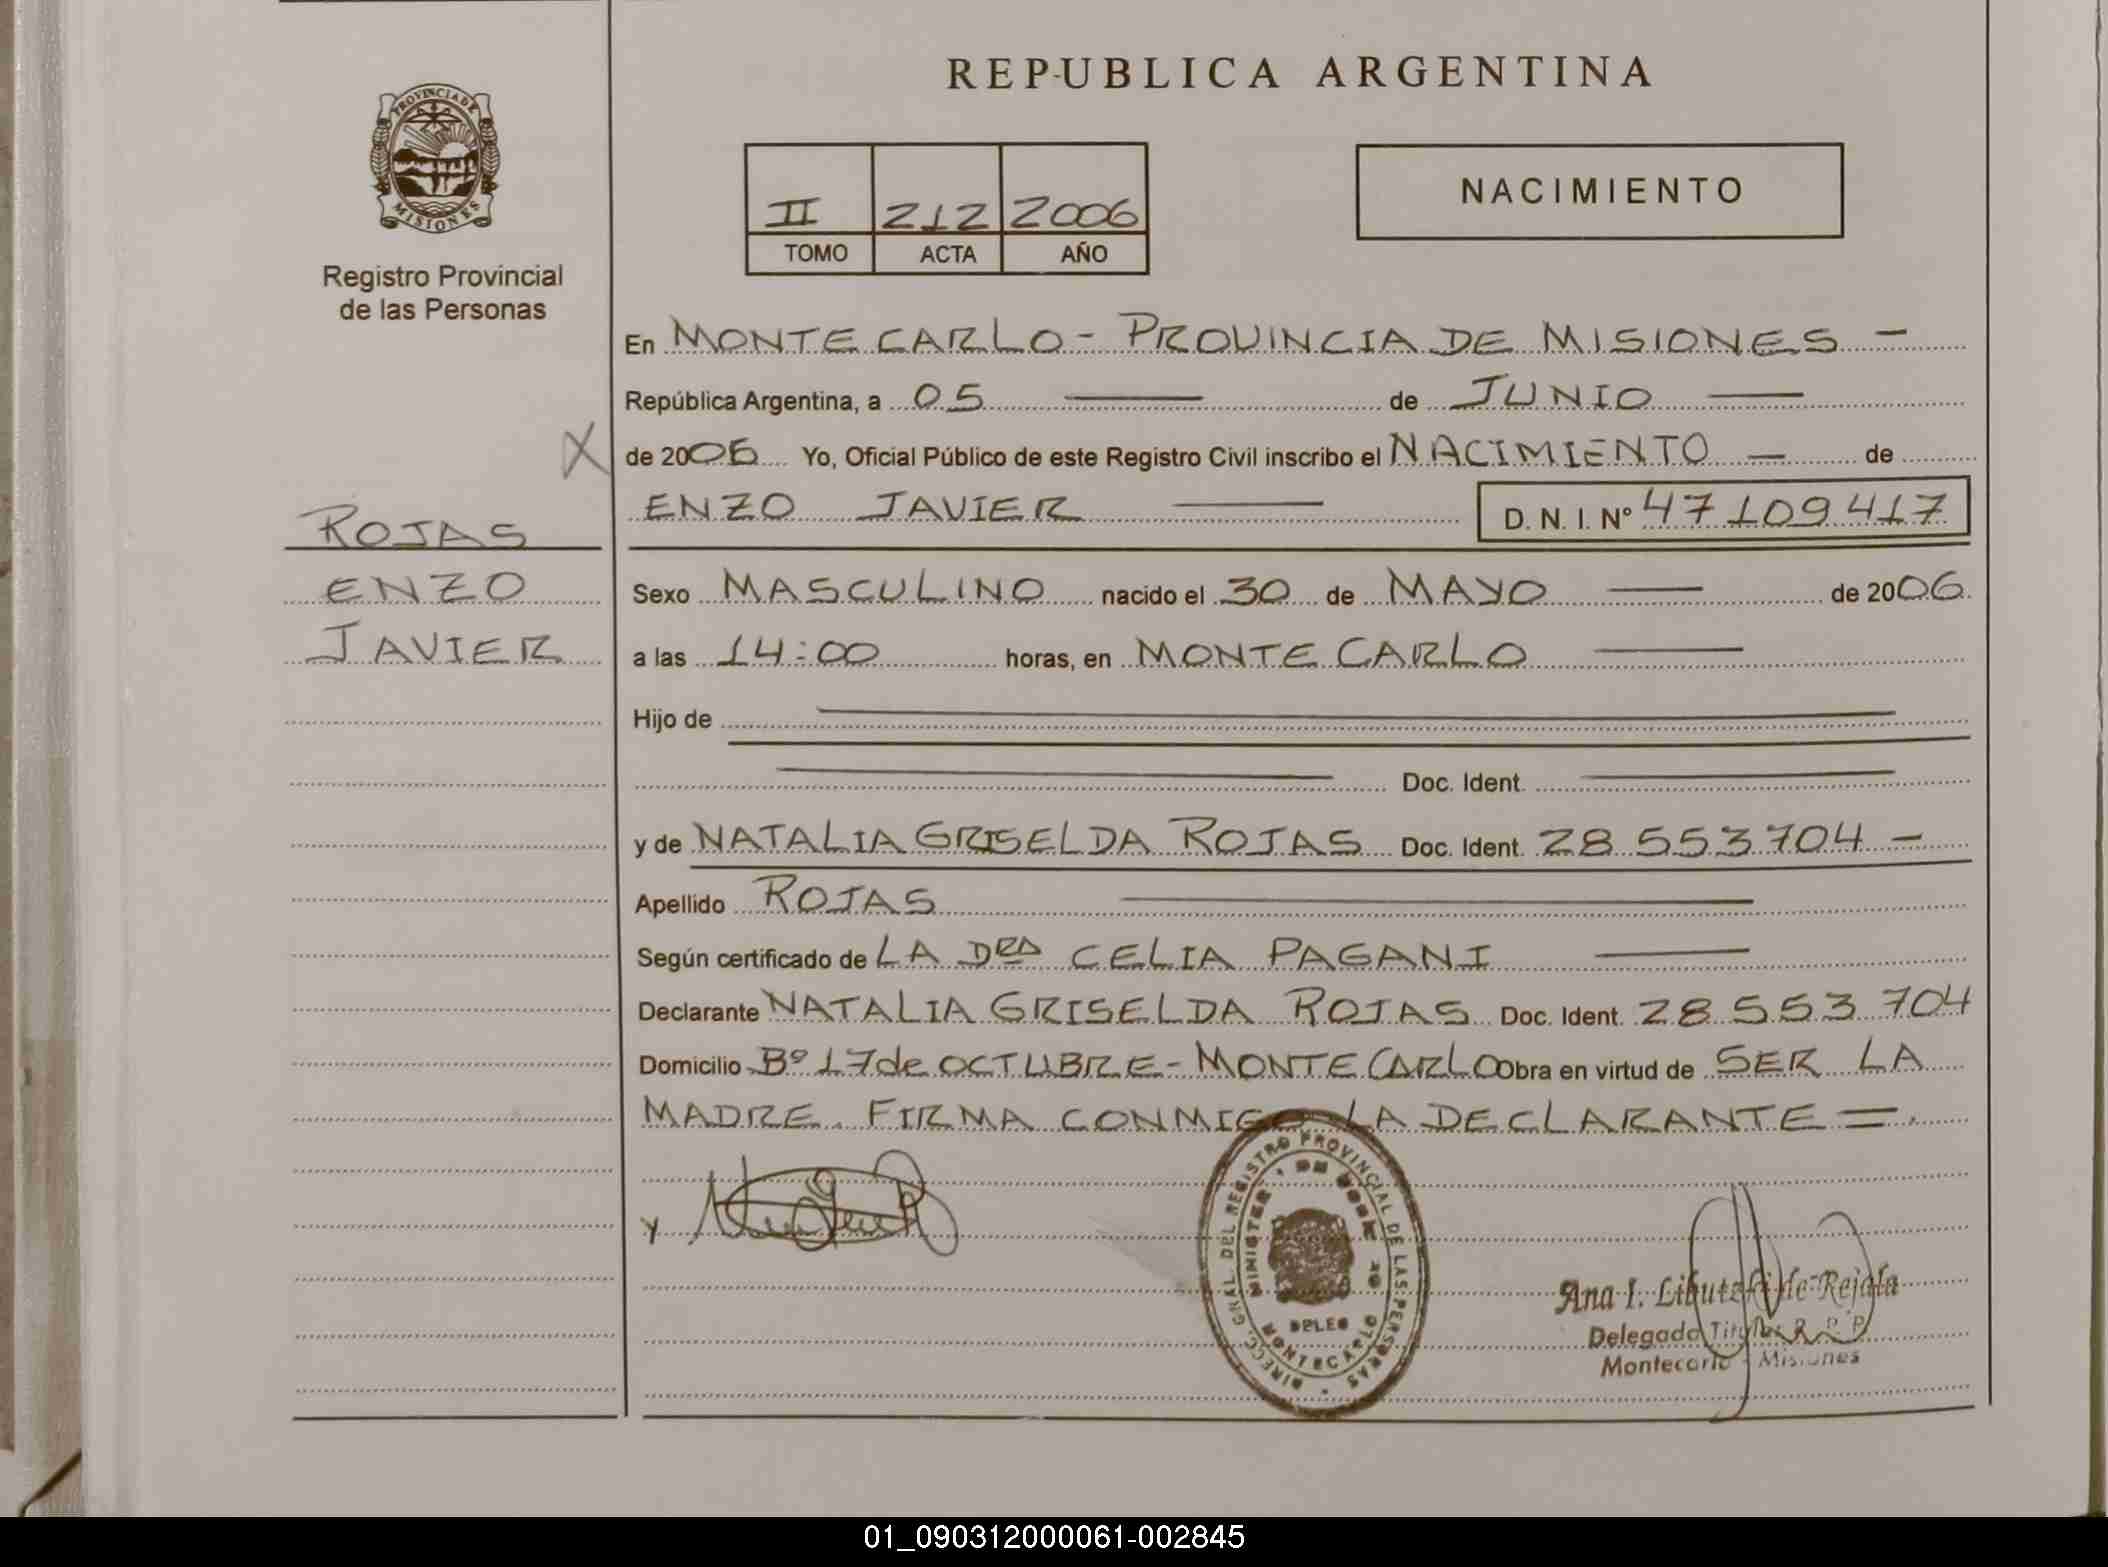 REPUBLICA ARGENTINA
PROVINCIA DE
MISIONES
Registro Provincial
de las Personas
II 212 2006
TOMO ACTA AÑO
NACIMIENTO
En MONTECARLO - PROVINCIA DE MISIONES -
República Argentina, a 05 de JUNIO
X
de 2006 Yo, Oficial Público de este Registro Civil inscribo el NACIMIENTO - de
ENZO JAVIER D. N. I. Nº 47109417
ROJAS
ENZO
JAVIER
Sexo MASCULINO nacido el 30 de MAYO de 2006
a las 14:00 horas, en MONTECARLO
Hijo de
Doc. Ident.
y de NATALIA GRISELDA ROJAS Doc. Ident. 28 553 704 -
Apellido ROJAS
Según certificado de LA DRA CELIA PAGANI
Declarante NATALIA GRISELDA ROJAS Doc. Ident. 28 553 704
Domicilio Bº 17 de OCTUBRE - MONTECARLO Obra en virtud de SER LA
MADRE. FIRMA CONMIGO LA DECLARANTE =.
y
DIRECC. GRAL. DEL REGISTRO PROVINCIAL DE LAS PERSONAS
MONTECARLO
Ana I. de Rejala
Delegada Titular R. P. P.
Montecarlo - Misiones
01_090312000061-002845